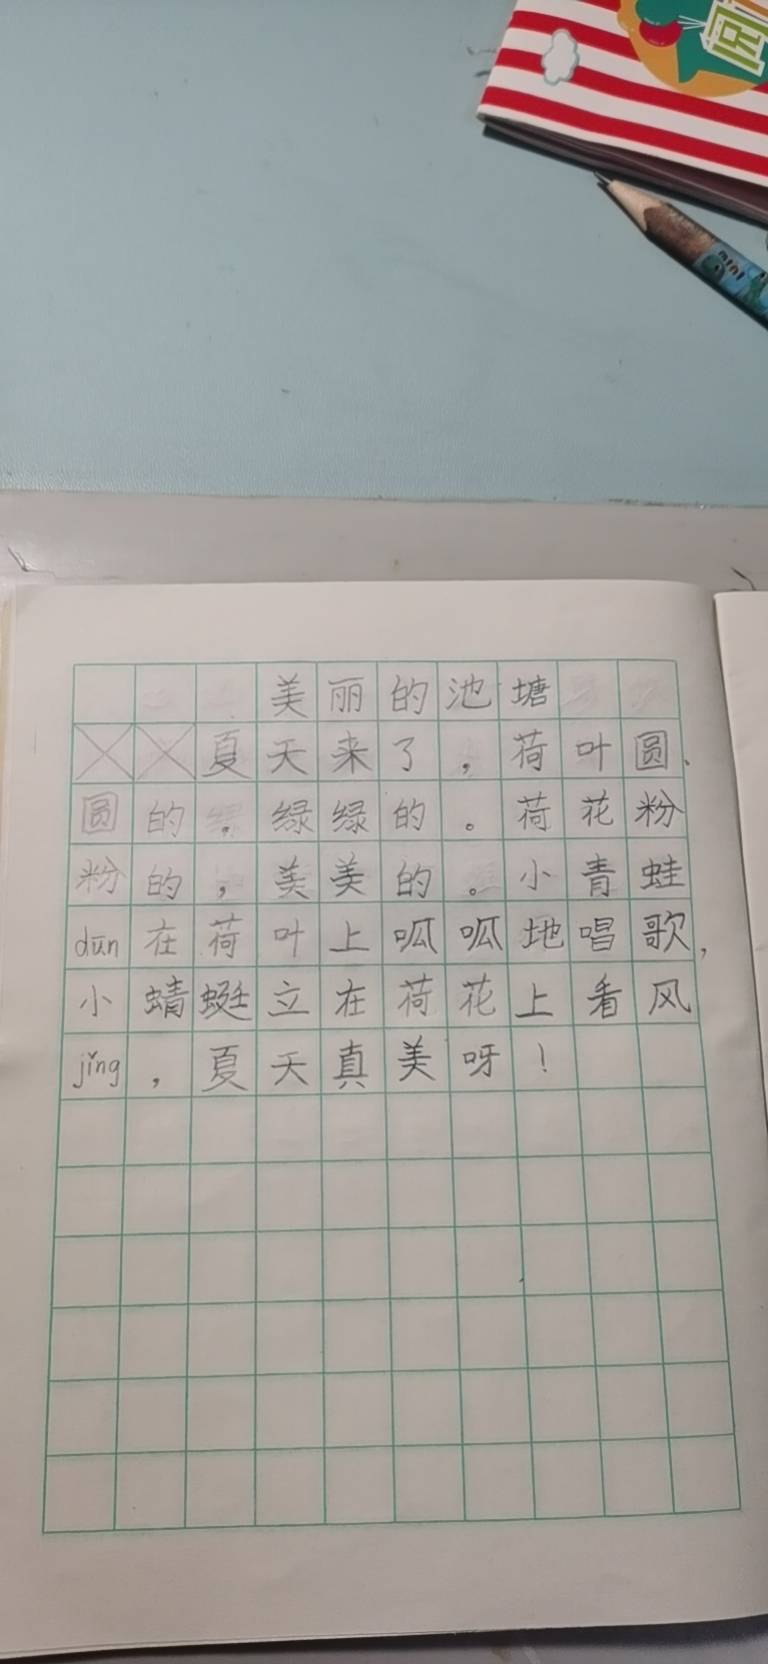 美丽的池塘
夏天来了，荷叶圆、
圆的，绿绿的。荷花粉
粉的，美美的。小青蛙
dūn在荷叶上呱呱地唱歌，
小蜻蜓立在荷花上看风
jǐng，夏天真美呀！
mini